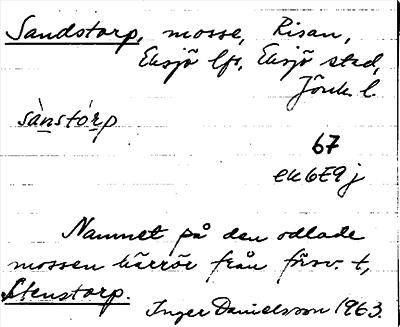 Sandstorp, mosse, Risan,
Eksjö lfs, Eksjö stad,
Jönk. l.
sànstórp
67
ek 6E9j
Namnet på den odlade
mossen härrör från försv. t,
Stenstorp.
Inger Danielsson 1963.